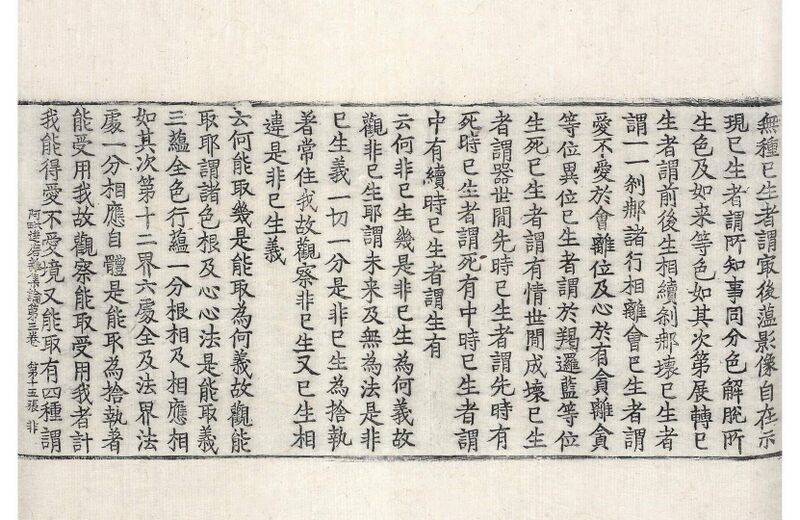 無種已生者謂㝡後蘊影像自在示
現已生者謂所知事同分色解脫所
生色及如来等色如其次第展轉已
生者謂前後生相續剎那壞已生者
謂一一剎那諸行相離會已生者謂
愛不愛於會離位及心於有貪離貪
等位異位已生者謂於羯邏藍等位
生死已生者謂有情世間成壞已生
者謂器世間先時已生者謂先時有
死時已生者謂死有中時已生者謂
中有續時已生者謂生有
云何非已生幾是非已生為何義故
觀非已生耶謂未来及無為法是非
已生義一切一分是非已生為捨執
著常住我故觀察非已生又已生相
違是非已生義
云何能取幾是能取為何義故觀能
取耶謂諸色根及心心法是能取義
三蘊全色行蘊一分根相及相應相
如其次第十二界六處全及法界法
處一分相應自體是能取為捨執著
能受用我故觀察能取受用我者計
我能得愛不愛境又能取有四種謂
阿毗達磨集論第三卷 第十五張 非